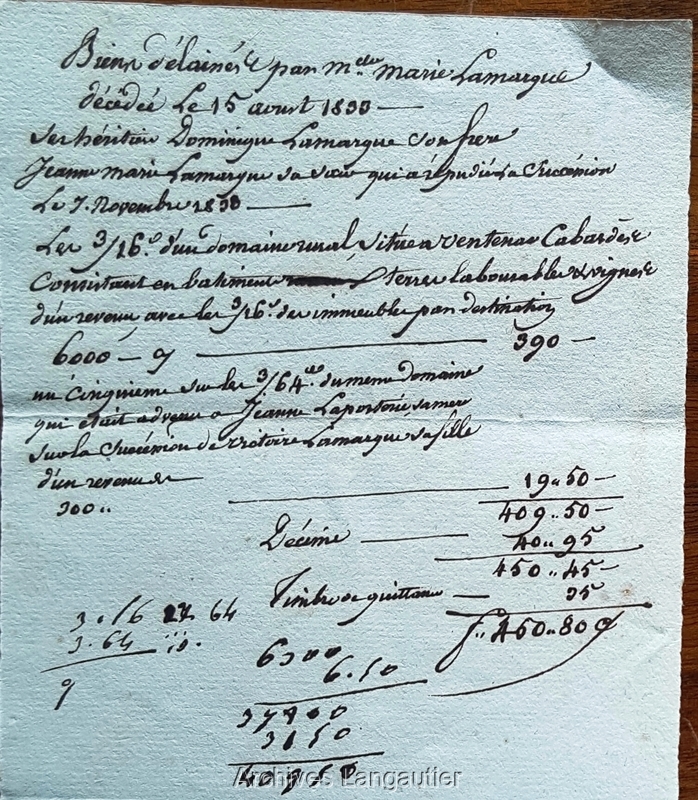 Biens délaissés par m.elle marie Lamarque
décédée Le 15 aoust 1838 —
ses héritiers Dominique Lamarque son frere
Jeanne marie Lamarque sa sœur qui a répudié La succession
Le 7. Novembre 1838 —
Les 3/16.e d'un domaine rural, situé a ventenac Cabardès
Consistant en batiment terres labourables & vignes
d'un revenu avec les 3/16.e des immeubles par destination
6000 — 390 —
un cinquieme sur les 3/64.es du meme domaine
qui était advenu a Jeanne Laporterie sa mere
sur la succession de victoire Lamarque sa fille
d'un revenu de —
300 .. 19 .. 50 —
409 .. 50 —
Décime — 40 .. 95
450 .. 45 —
Timbre de quittance — 35
f .. 450 .. 80
3 . 16 64
3 . 64
9
6300
6.50
37800
3150
40950
Archives Langautier